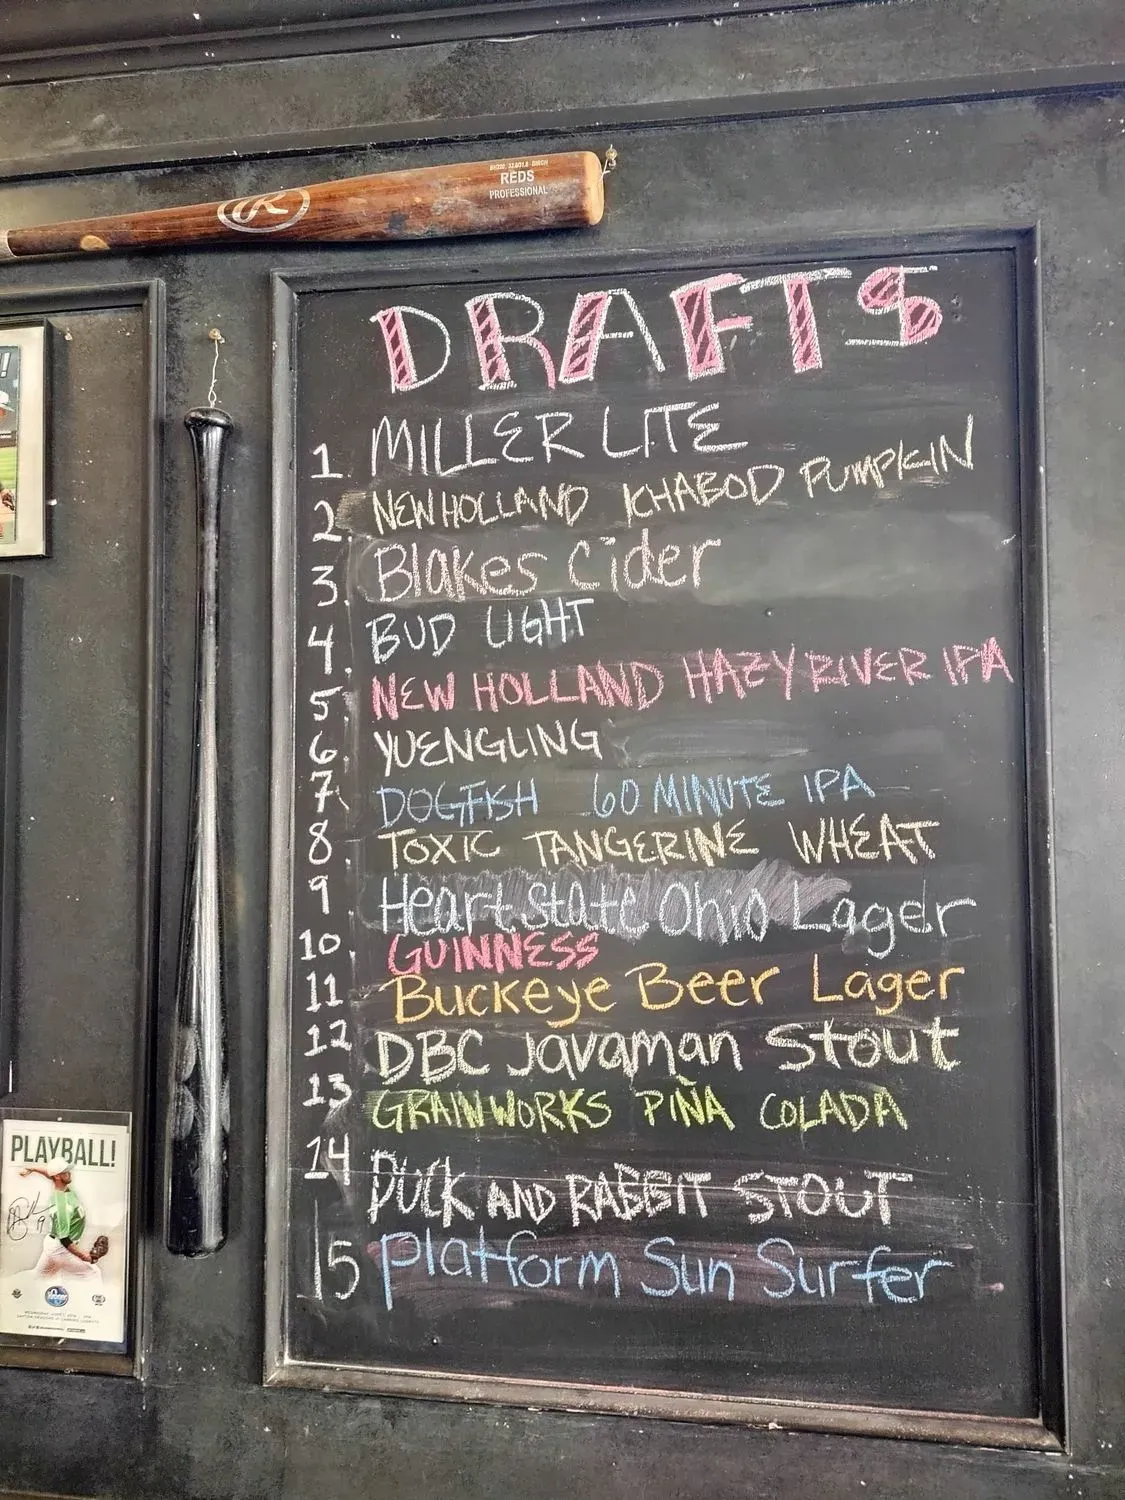 REDS
PROFESSIONAL
DRAFTS
1 MILLER LITE
2. NEW HOLLAND ICHABOD PUMPKIN
3. Blakes Cider
4. BUD LIGHT
5. NEW HOLLAND HAZY RIVER IPA
6. YUENGLING
7. DOGFISH 60 MINUTE IPA
8. TOXIC TANGERINE WHEAT
9 Heart State Ohio Lager
10. GUINNESS
11 Buckeye Beer Lager
12 DBC Javaman Stout
13 GRAINWORKS PIÑA COLADA
14 DUCK AND RABBIT STOUT
15 Platform Sun Surfer
PLAYBALL!